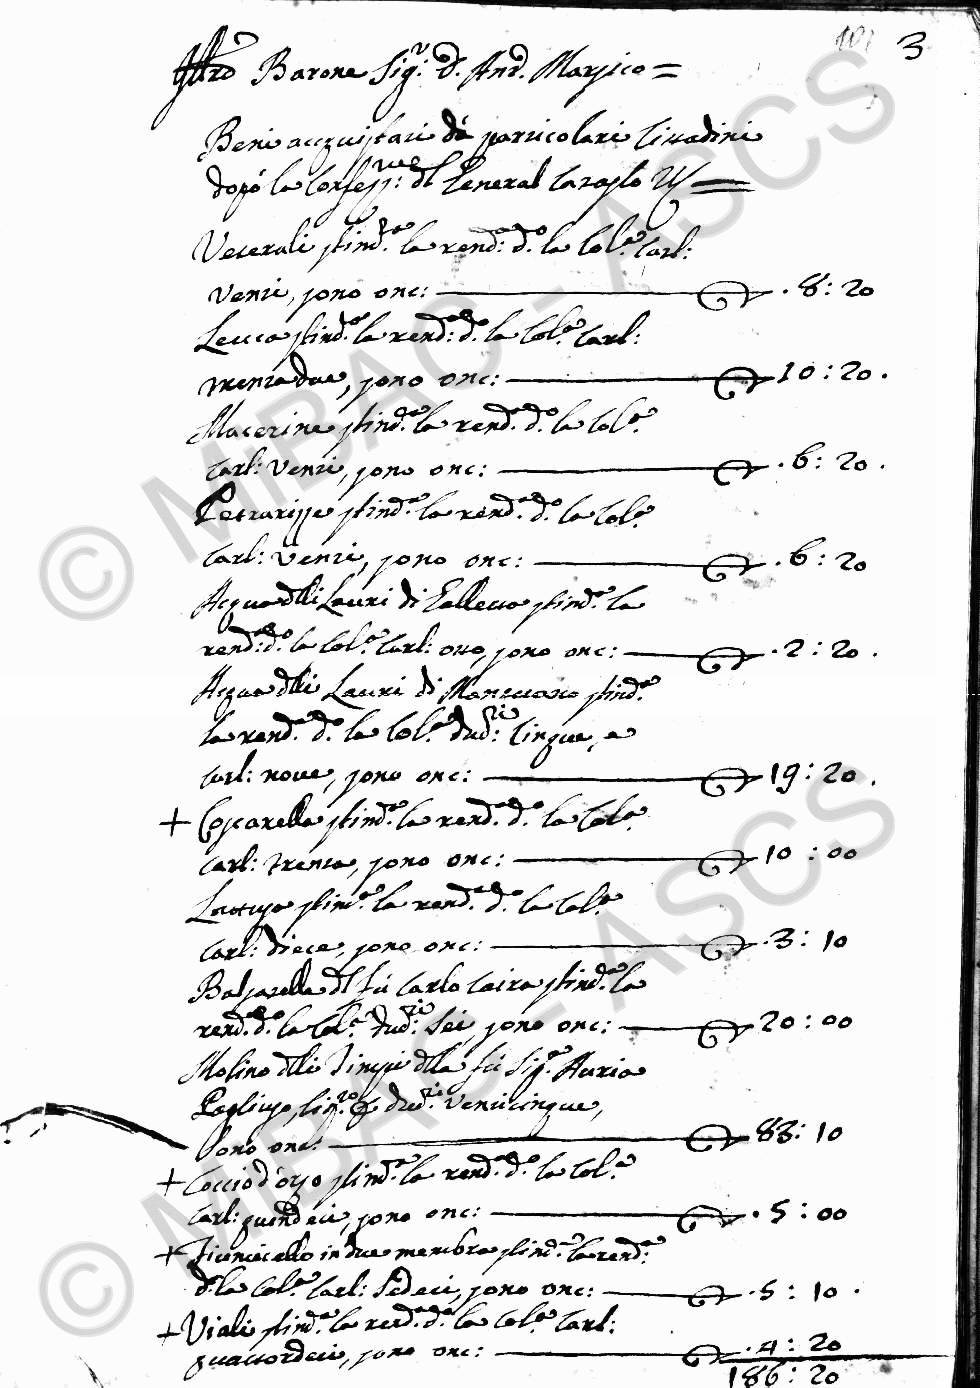 101 3
Illro Barone Sig.r D. And. Marsico =
Beni acquistati dà particolari Cittadini
dopò la Confess:ne del General Catasto
Veterali stind.a la rend: d. la Col.a Carl:
Venti, sono onc: .8:20
Lecco stind.a la rend: d. la Col.a Carl:
trentadue, sono onc: 10:20.
Macerine stind.a la rend. d. la Col.a
Carl: Venti, sono onc: .6:20.
Petrarizze stind.a la rend. d. la Col.a
Carl: Venti, sono onc: .6:20
Acqua delli Lauri di stind.a la
rend: d. la Col.a Carl: otto, sono onc: .2:20.
Acqua delli Lauri di stind.a
la rend. d. la Col.a dud:ti Cinque, e
Carl: nove, sono onc: 19:20.
+ Coscarella stind.a la rend. d. la Col.a
Carl: trenta, sono onc: 10:00
stim.a la rend. d. la Col.a
Carl: diece, sono onc: .3:10
Balsarella del fù Carlo Caira stind.a la
rend. d. la Col.a dud:ti Sei, sono onc: 20:00
Molino delli Timpi della fù Sig.a Auria
Pogliese, dud.ti Venticinque,
Sono onc: 83:10
+ Coccio d'orso stind.a la rend. d. la Col.a
Carl: quindeci, sono onc: .5:00
+ Ficuncello in due membra stind.a la rend:
d. la Col.a Carl: Sedeci, sono onc: .5:10.
+ Viali stind.a la rend. d. la Col.a Carl:
quattordeci, sono onc: .4:20
186:20
© MiBAC - ASCS
© MiBAC - ASCS